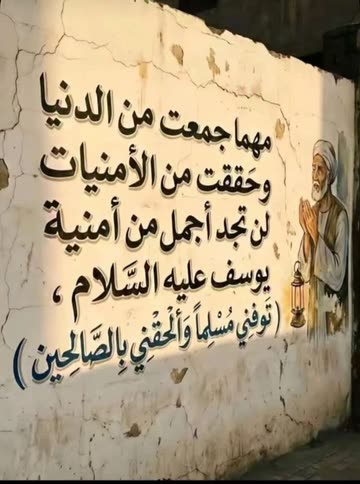 مهما جمعت من الدنيا
وحَققت من الأمنيات
لن تجد أجمل من أمنية
يوسف عليه السَّلام ،
( تَوفني مُسْلِماً وَأَلحَقْني بِالصَّالِحِين )